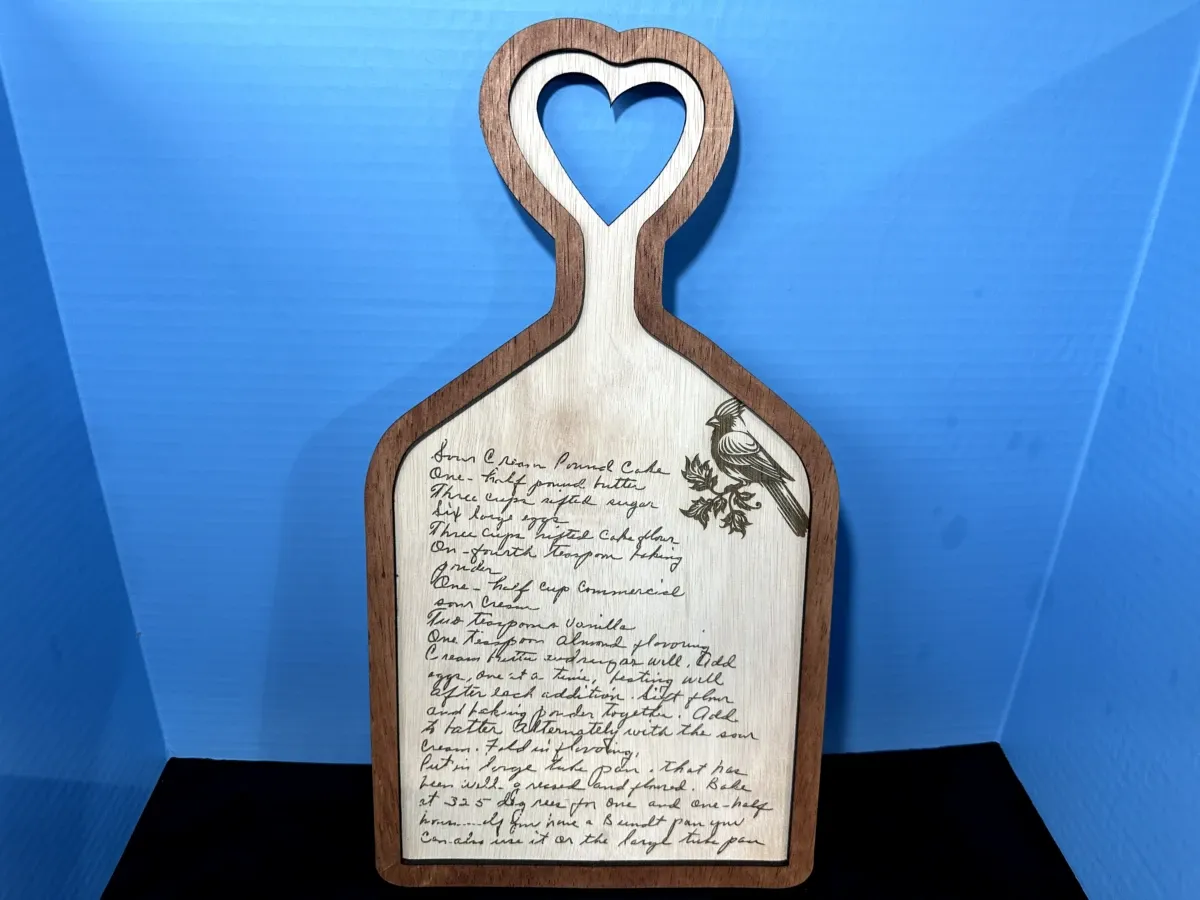 Sour Cream Pound Cake
One-half pound butter
Three cups sifted sugar
Six large eggs
Three cups sifted Cake flour
On-fourth teaspoon baking
powder
One-half cup Commercial
sour cream
Two teaspoons Vanilla
One teaspoon almond flavoring
Cream butter and sugar well, Add
eggs, one at a time, beating well
after each addition. Sift flour
and baking powder together. Add
to batter Alternately with the sour
cream. Fold in flavoring,
Put in large tube pan. that has
been well-greased and floured. Bake
at 325 degrees for one and one-half
hours....If you have a Bundt pan you
Can also use it or the large tube pan